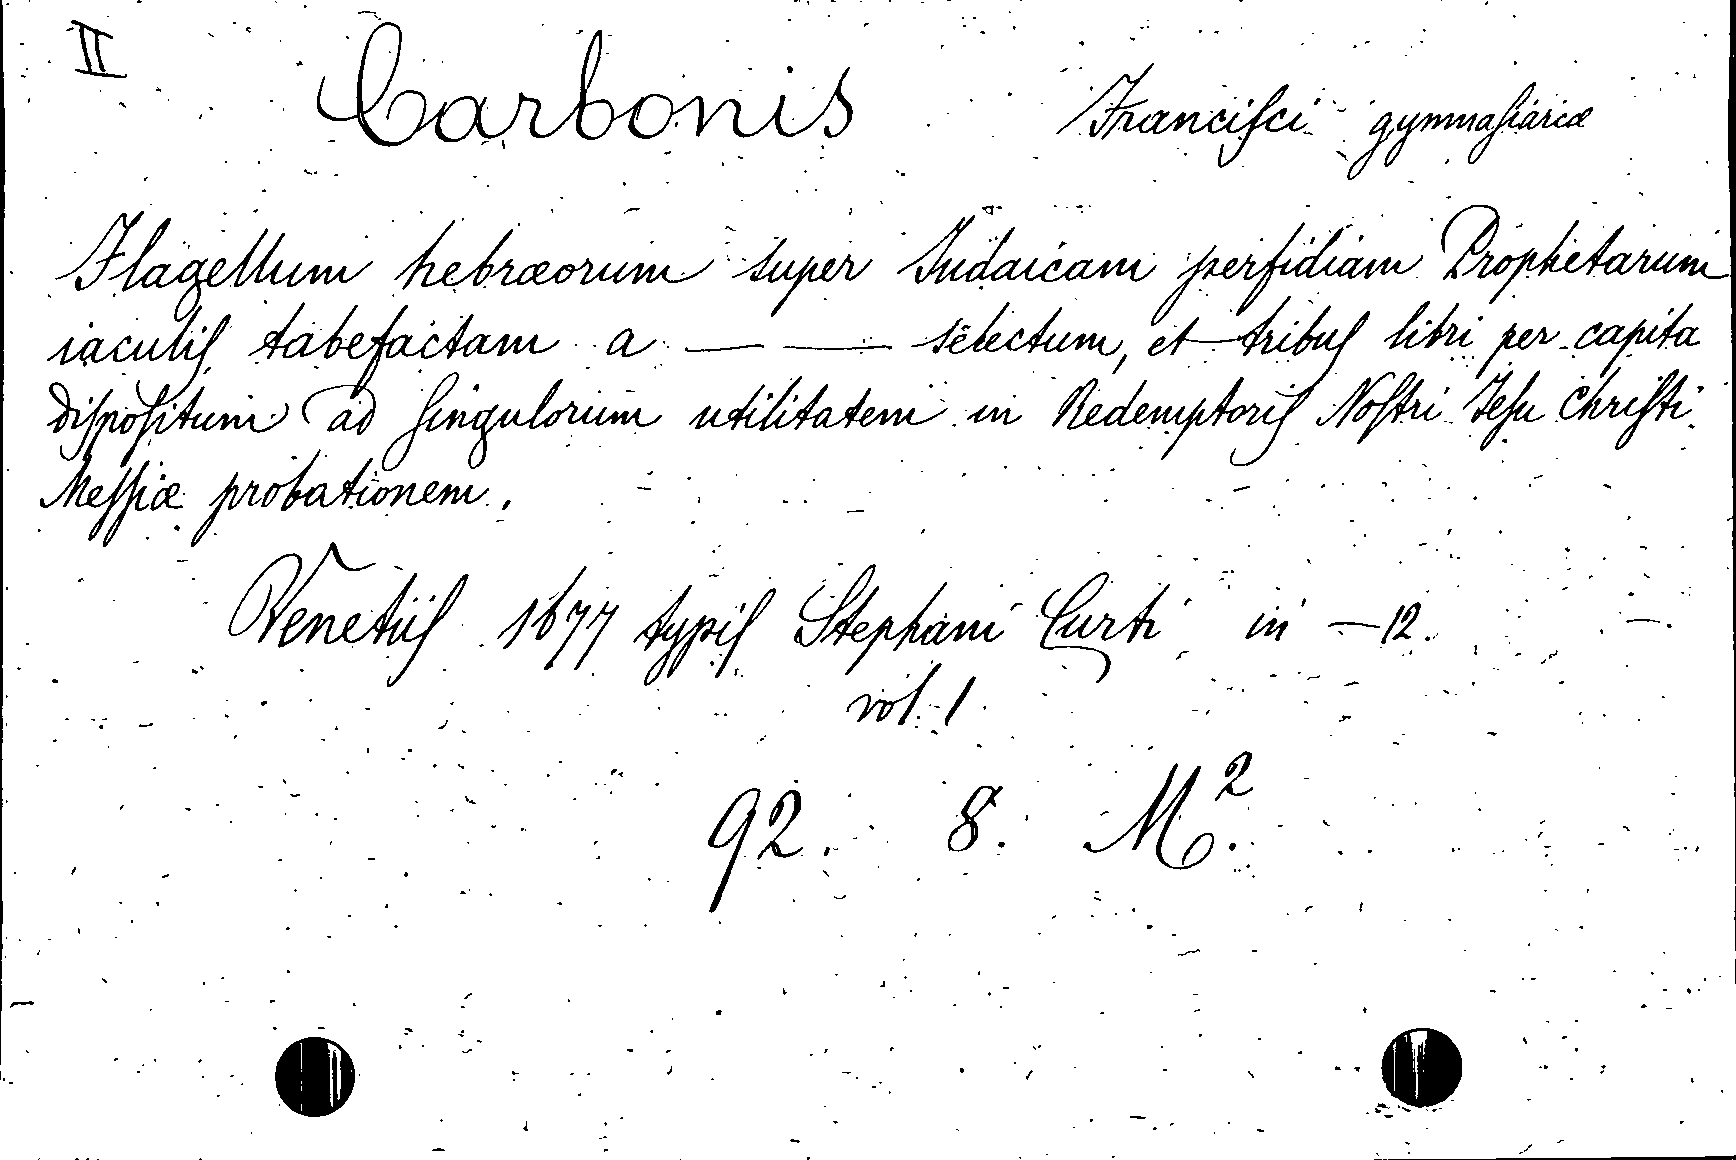 II Carbonis Franciſci gymnaſiaricæ
Flagellum hebræorum super Iudaicam perfidiam Prophetarum
iaculiſ tabefactam a — — selectum, et tribuſ libri per capita
diſpoſitum ad ſingulorum utilitatem in Redemptoriſ Noſtri Jeſu Chriſti
Meſſiæ probationem.
Venetiiſ 1677 typiſ Stephani Curti in —12.
vol. 1
92. 8. M².